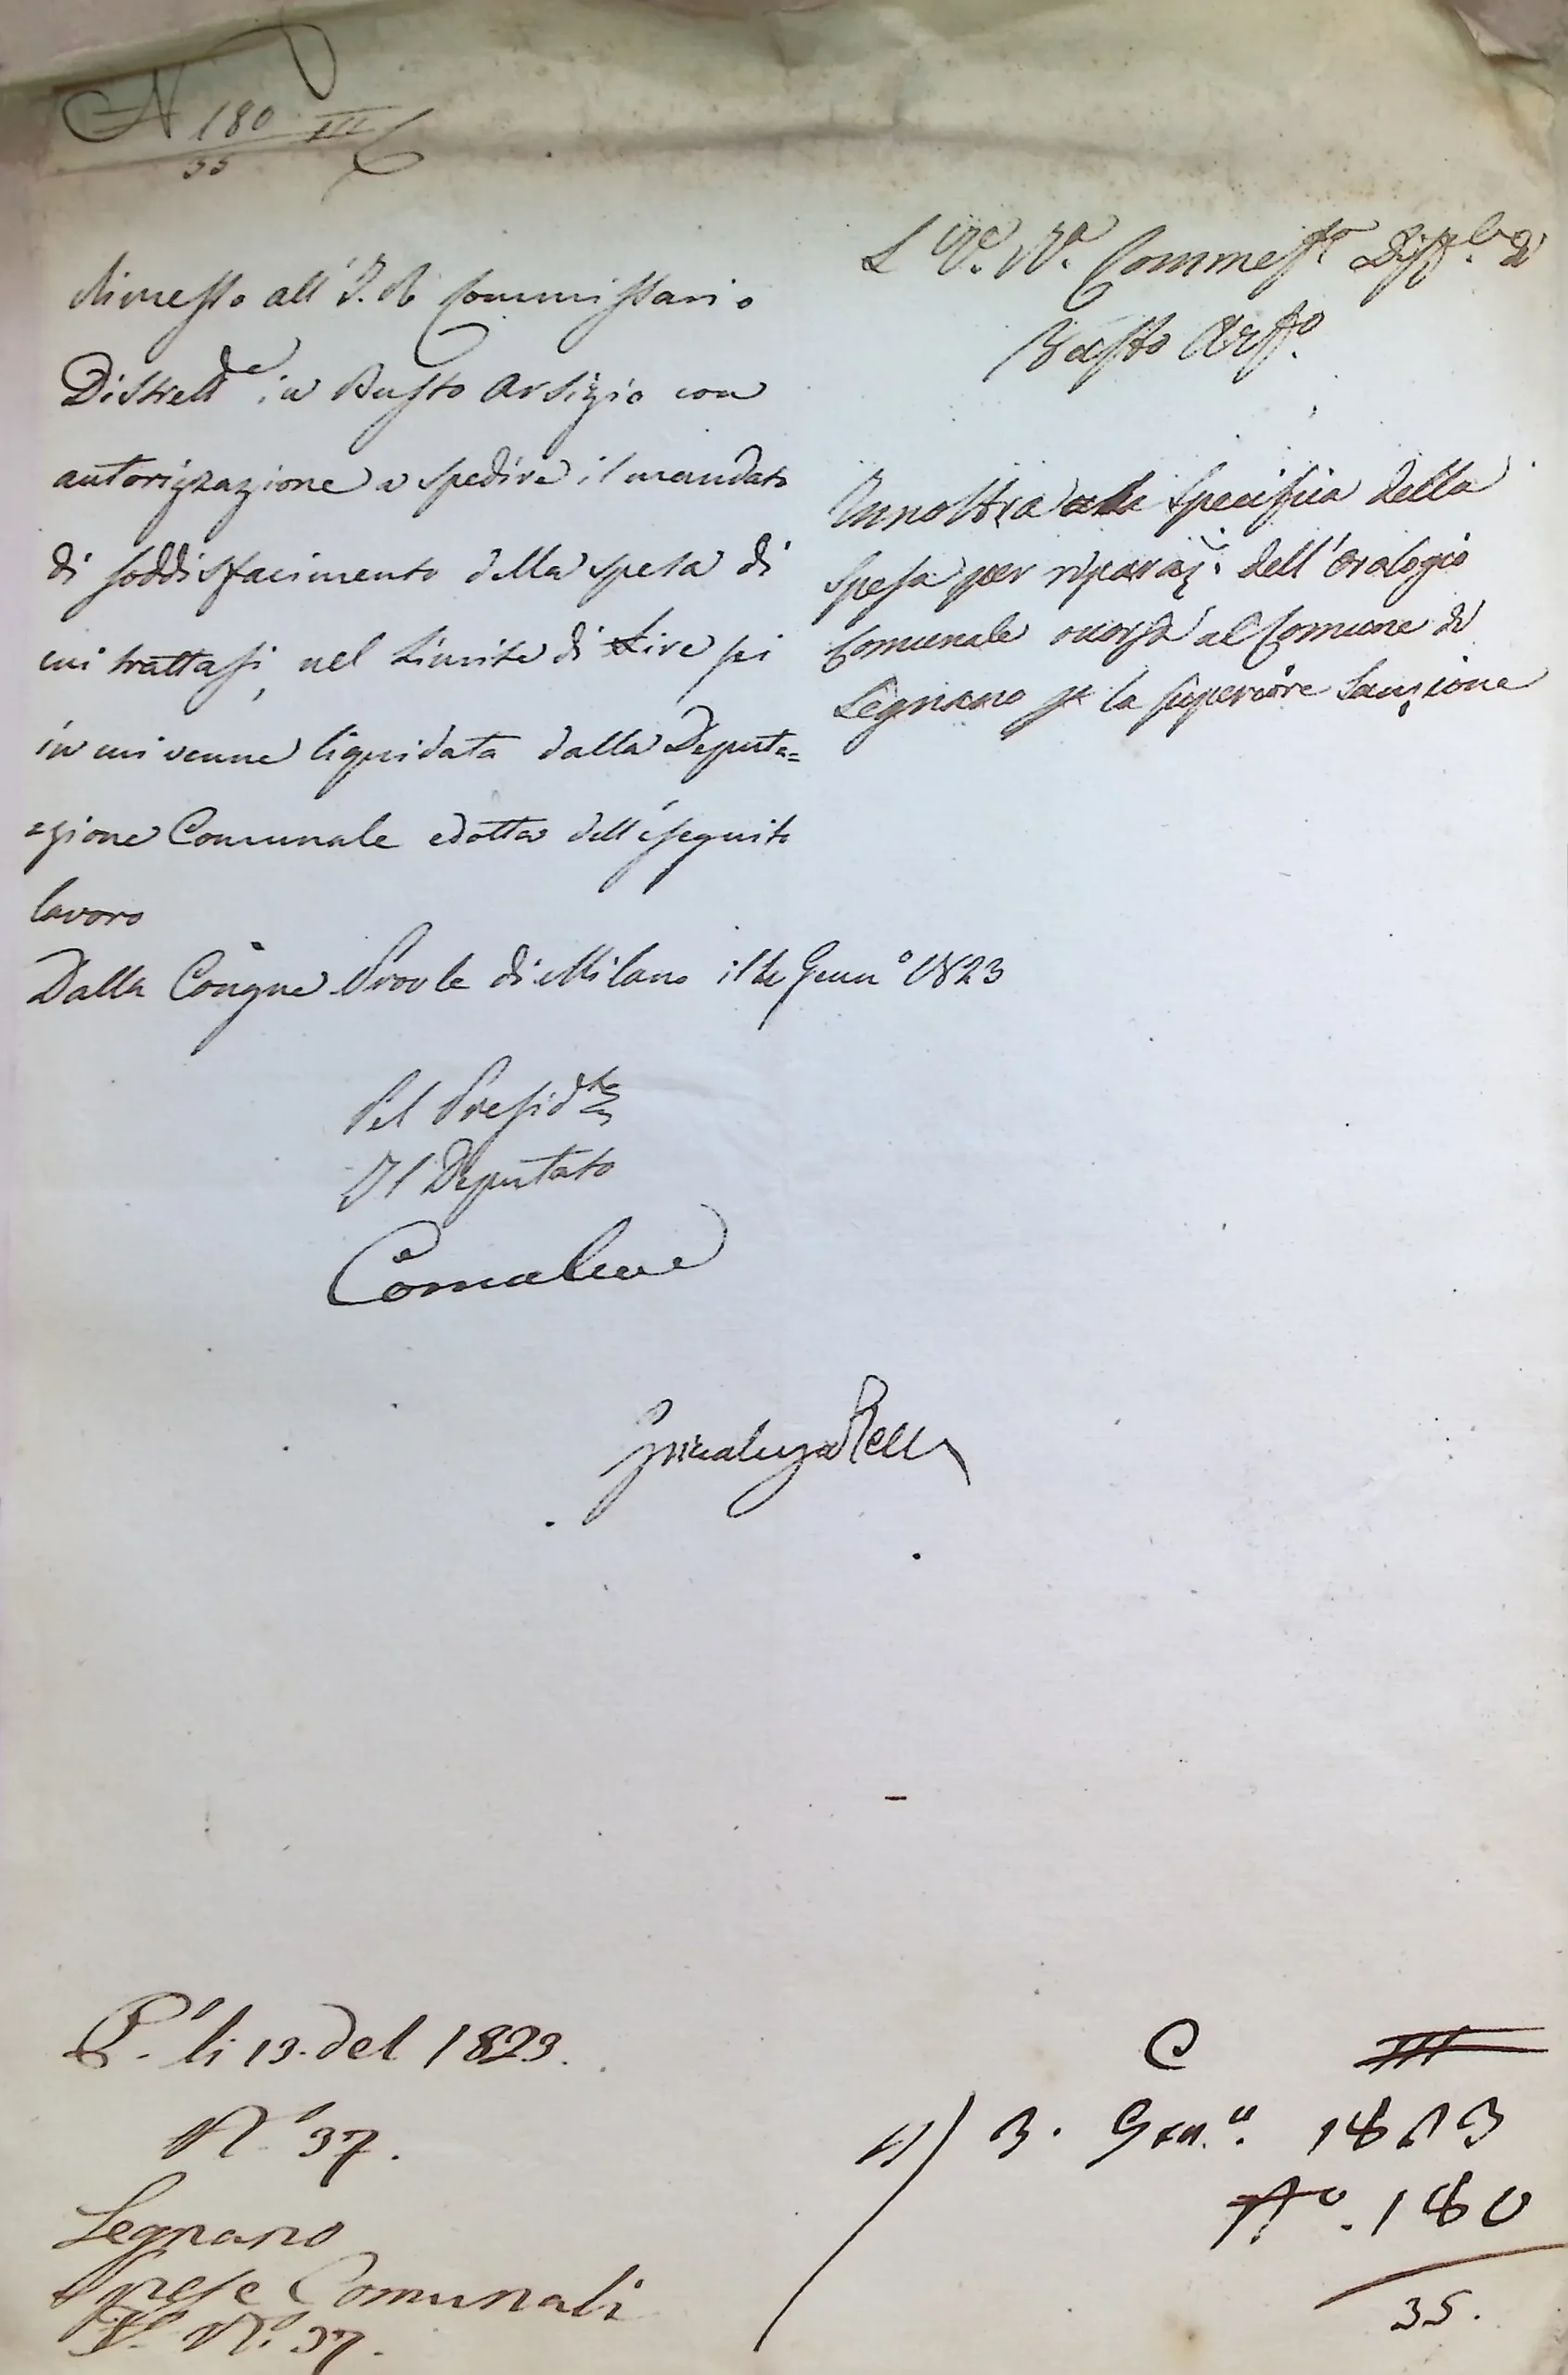 N 180 III
35
Rimesso all' I. R. Commissario
Distrett.e in Busto Arsizio con
autorizzazione a spedire il mandato
di soddisfacimento della spesa di
cui trattasi, nel limite di Lire sei
in cui venne liquidata dalla Deputa=
zione Comunale edotta dell'eseguito
lavoro
Dalla Congne Provle di Milano il Genn° 1823
Pel Presidte
Il Deputato
L' Commess.° Dist.le di
Busto Ars.°
Innoltra la specifica della
spesa per riparaz.e dell'orologio
Comunale occorsa al Comune di
Legnano pr la superiore Sanzione
P. li 13. del 1823.
N.° 37.
Legnano
Spese Comunali
N.° 37.
C III
3. Gen.° 1823
N°. 180
35.